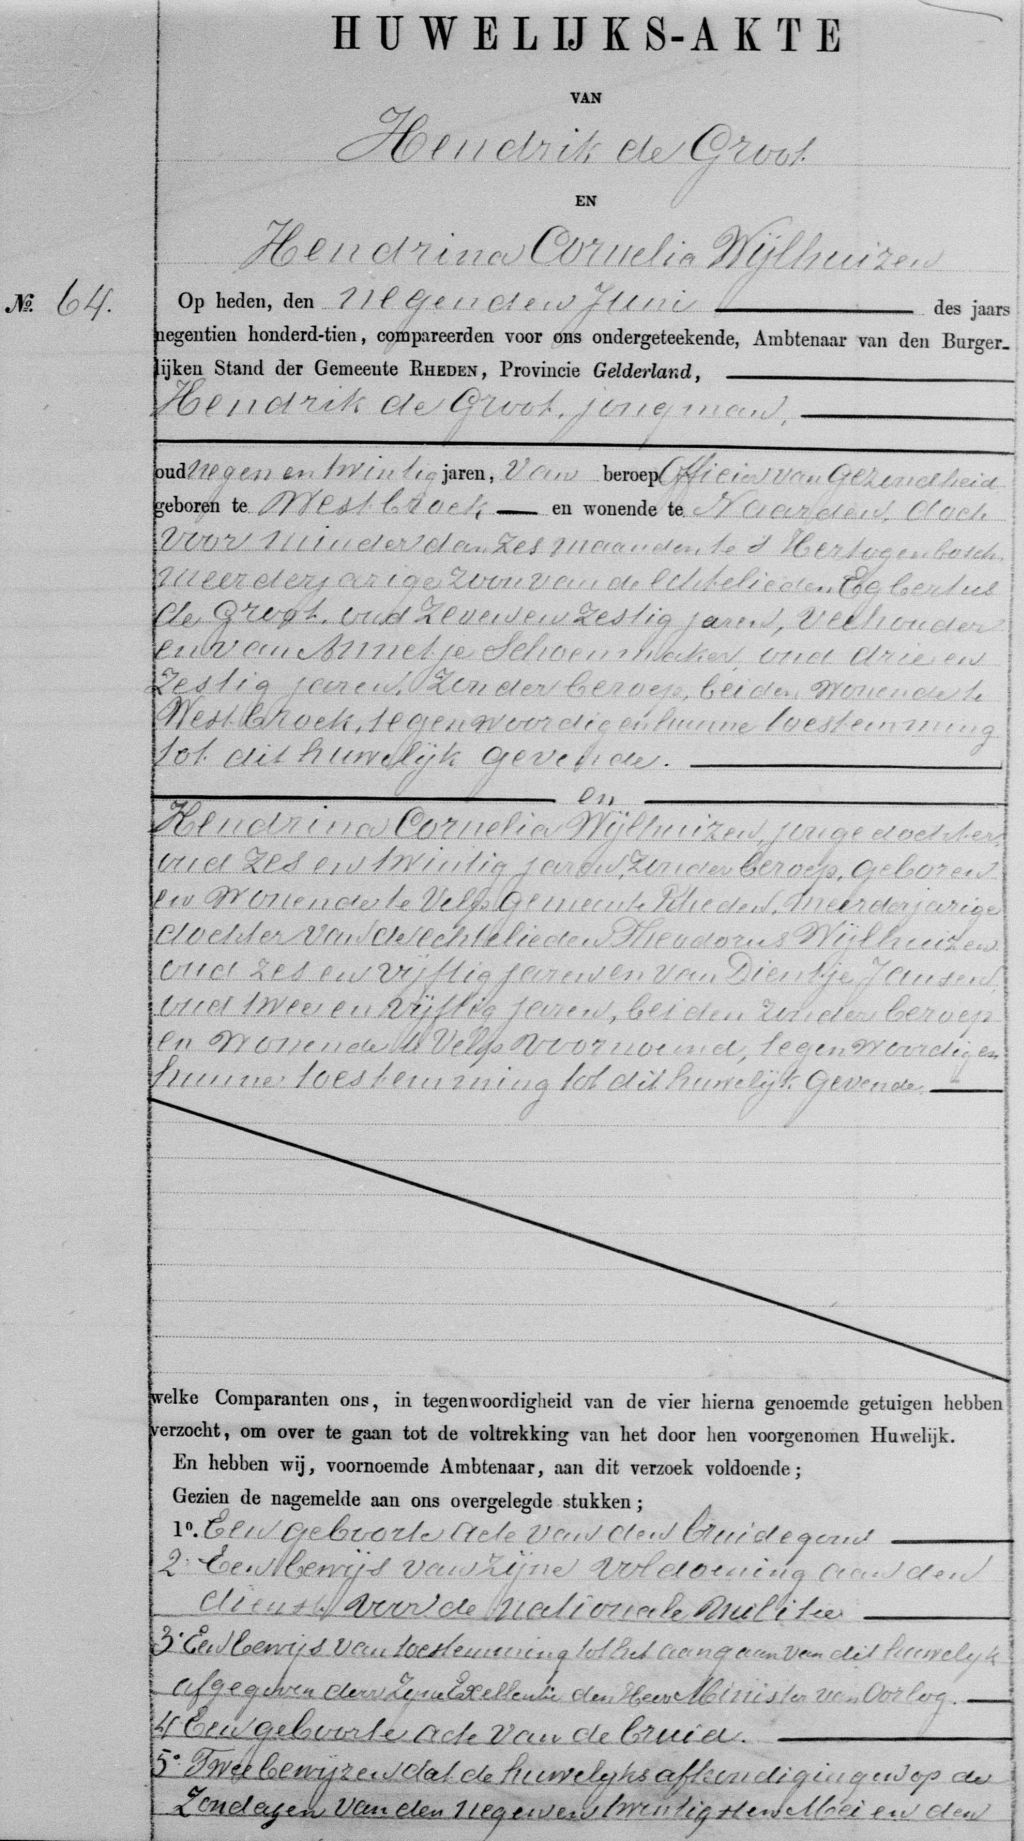 HUWELIJKS-AKTE
VAN
Hendrik de Groot
EN
Hendrina Cornelia Wijlhuizen
№. 64.
Op heden, den negenden Juni des jaars
negentien honderd-tien, compareerden voor ons ondergeteekende, Ambtenaar van den Burger-
lijken Stand der Gemeente RHEDEN, Provincie Gelderland,
Hendrik de Groot, jongman,
oud negen en twintig jaren, van beroep Officier van Gezondheid
geboren te Westbroek en wonende te Naarden, doch
voor minder dan zes maanden te 's Hertogenbosch
meerderjarige zoon van de echtelieden Egbertus
de Groot, oud zeven en zestig jaren, veehouder
en van Annetje Schoenmaker, oud drie en
zestig jaren, zonder beroep, beiden wonende te
Westbroek, tegenwoordig en hunne toestemming
tot dit huwelijk gevende.
en
Hendrina Cornelia Wijlhuizen, jonge dochter,
oud zes en twintig jaren, zonder beroep, geboren
en wonende te Velp gemeente Rheden, meerderjarige
dochter van de echtelieden Theodorus Wijlhuizen
oud zes en vijftig jaren en van Dientje Jansen,
oud twee en vijftig jaren, beiden zonder beroep
en wonende te Velp voornoemd, tegenwoordig en
hunne toestemming tot dit huwelijk gevende.
welke Comparanten ons, in tegenwoordigheid van de vier hierna genoemde getuigen hebben
verzocht, om over te gaan tot de voltrekking van het door hen voorgenomen Huwelijk.
En hebben wij, voornoemde Ambtenaar, aan dit verzoek voldoende;
Gezien de nagemelde aan ons overgelegde stukken;
1º. Een geboorte acte van den bruidegom
2º Een bewijs van zijne voldoening aan den
dienst voor de nationale militie
3º Een bewijs van toestemming tot het aangaan van dit huwelijk
afgegeven door Zijne Exellentie den Heer Minister van Oorlog.
4 Een geboorte acte van de bruid.
5º Twee bewijzen dat de huwelijks afkondigingen op de
Zondagen van den negen en twintigsten Mei en den